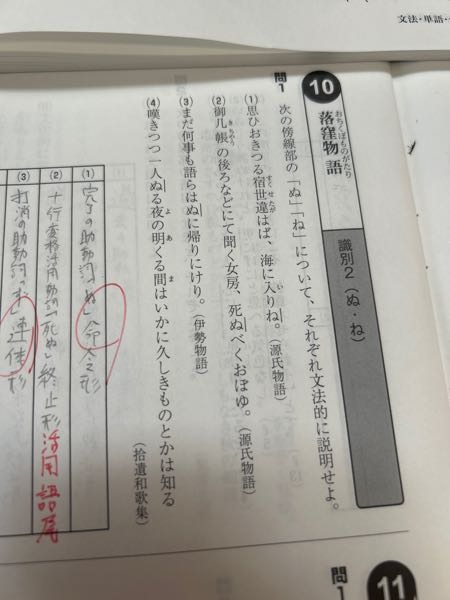 文法・単語・
10
おちくぼものがたり
落窪物語
識別2（ぬ・ね）
問1 次の傍線部の「ぬ」「ね」について、それぞれ文法的に説明せよ。
(1) 思ひおきつる宿世違はば、海に入りね。（源氏物語）
すくせたが
い
(2) 御几帳の後ろなどにて聞く女房、死ぬべくおぼゆ。（源氏物語）
きちゃう
(3) まだ何事も語らはぬに帰りにけり。（伊勢物語）
(4) 嘆きつつ一人ぬる夜の明くる間はいかに久しきものとかは知る
よ あ ま
（拾遺和歌集）
(1) 完了の助動詞「ぬ」命令形
(2) ナ行変格活用動詞「死ぬ」終止形活用語尾
(3) 打消の助動詞「ず」連体形
11
問1